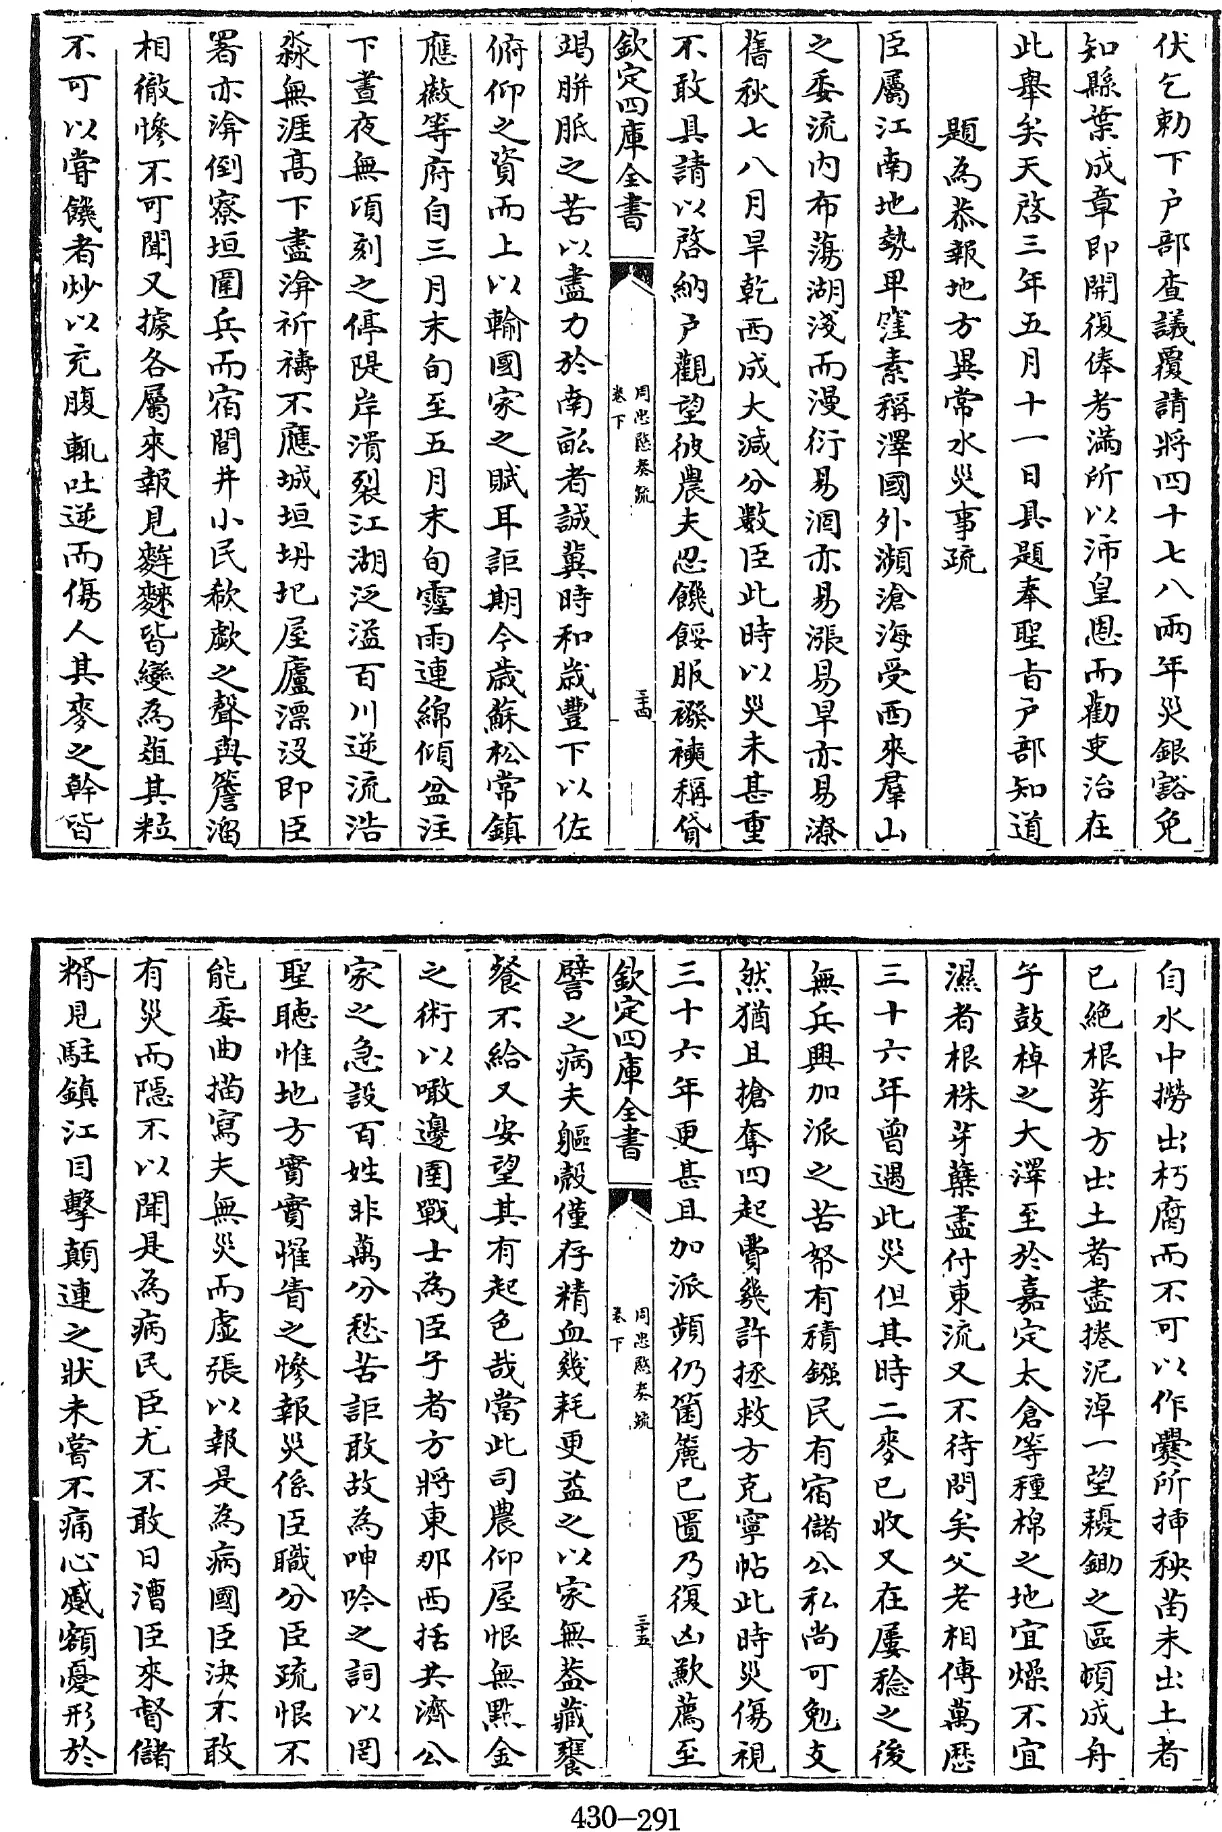 伏乞勅下户部查議覆請將四十七八兩年災銀豁免
知縣葉成章即開復俸考滿所以沛皇恩而勸吏治在
此舉矣天啓三年五月十一日具題奉聖旨户部知道
題為恭報地方異常水災事疏
臣屬江南地勢卑窪素稱澤國外瀕滄海受西來羣山
之委流内布蕩湖淺而漫衍易涸亦易漲易旱亦易潦
舊秋七八月旱乾西成大減分數臣此時以災未甚重
不敢具請以啓納户觀望彼農夫忍饑餒服襏襫稱貸
欽定四庫全書
周忠愍奏疏
卷下
三十四
竭胼胝之苦以盡力於南畝者誠冀時和歲豐下以佐
俯仰之資而上以輸國家之賦耳詎期今歲蘇松常鎮
應徽等府自三月末旬至五月末旬霪雨連綿傾盆注
下晝夜無頃刻之停隄岸潰裂江湖泛溢百川逆流浩
淼無涯高下盡渰祈禱不應城垣坍圯屋廬漂没即臣
署亦渰倒寮垣圍兵而宿閭井小民欷歔之聲與簷溜
相徹慘不可聞又據各屬來報見麰麳皆變為葅其粒
不可以嘗饑者炒以充腹輒吐逆而傷人其麥之幹皆
自水中撈出朽腐而不可以作爨所揷秧苗未出土者
已絶根芽方出土者盡捲泥淖一望耰鋤之區頓成舟
子鼓棹之大澤至於嘉定太倉等種棉之地宜燥不宜
濕者根株芽蘖盡付東流又不待問矣父老相傳萬歷
三十六年曾遇此災但其時二麥已收又在屢稔之後
無兵興加派之苦帑有積鏹民有宿儲公私尚可勉支
然猶且搶奪四起費幾許拯救方克寧帖此時災傷視
三十六年更甚且加派頻仍箇簏已匱乃復凶歉薦至
欽定四庫全書
周忠愍奏疏
卷下
三十五
譬之病夫軀殻僅存精血幾耗更益之以家無葢藏饔
餐不給又安望其有起色哉當此司農仰屋恨無㸃金
之術以噉邊圉戰士為臣子者方將東那西括共濟公
家之急設百姓非萬分愁苦詎敢故為呻吟之詞以罔
聖聽惟地方實實懼眚之慘報災係臣職分臣疏恨不
能委曲描寫夫無災而虚張以報是為病國臣決不敢
有災而隱不以聞是為病民臣尤不敢日漕臣來督儲
糈見駐鎮江目擊顛連之狀未嘗不痛心蹙額憂形於
430-291